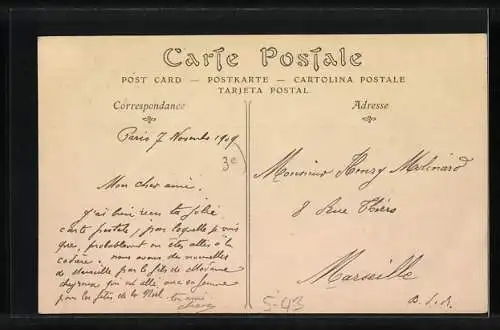 Carte Postale
POST CARD — POSTKARTE — CARTOLINA POSTALE
TARJETA POSTAL
Correspondance
Paris 7 Novembre 1909
3e
Mon cher ami.
J'ai bien reçu ta jolie
carte postale, par laquelle je vois
que, probablement vous êtes allés à la
nous avons des nouvelles
de Marseille par le fils de Madame
qui est allé
pour les fêtes de la Noël. ton ami
Adresse
Monsieur Henry Molinard
8 Rue Thiers
Marseille
B. d. R.
5-93